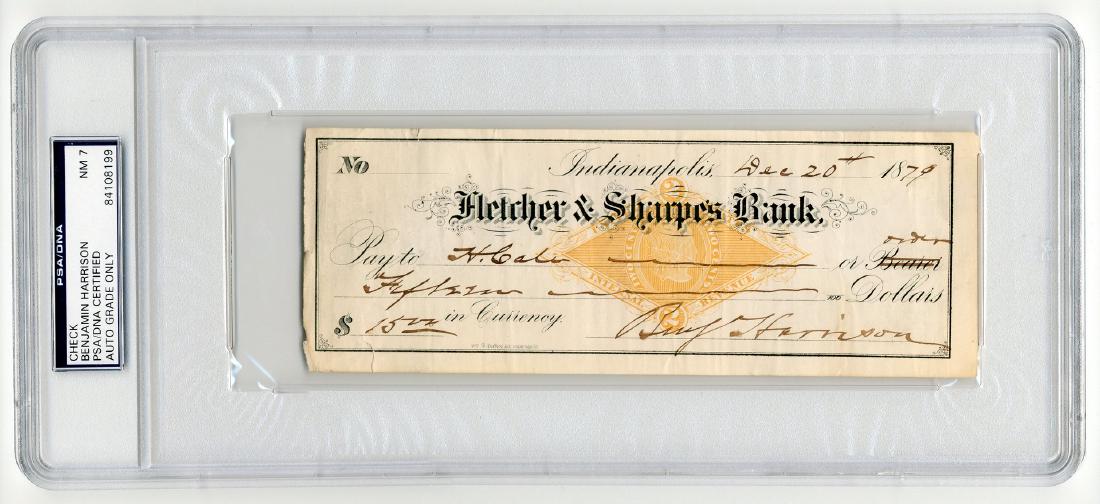 PSA/DNA
CHECK NM 7
BENJAMIN HARRISON
PSA/DNA CERTIFIED 84108199
AUTO GRADE ONLY
No
Indianapolis, Dec 20th 1879
Fletcher & Sharpe's Bank.
Pay to H. Cale or Bearer order
Fifteen 100 Dollars
$ 15 00 in Currency.
Benj Harrison
INTERNAL REVENUE